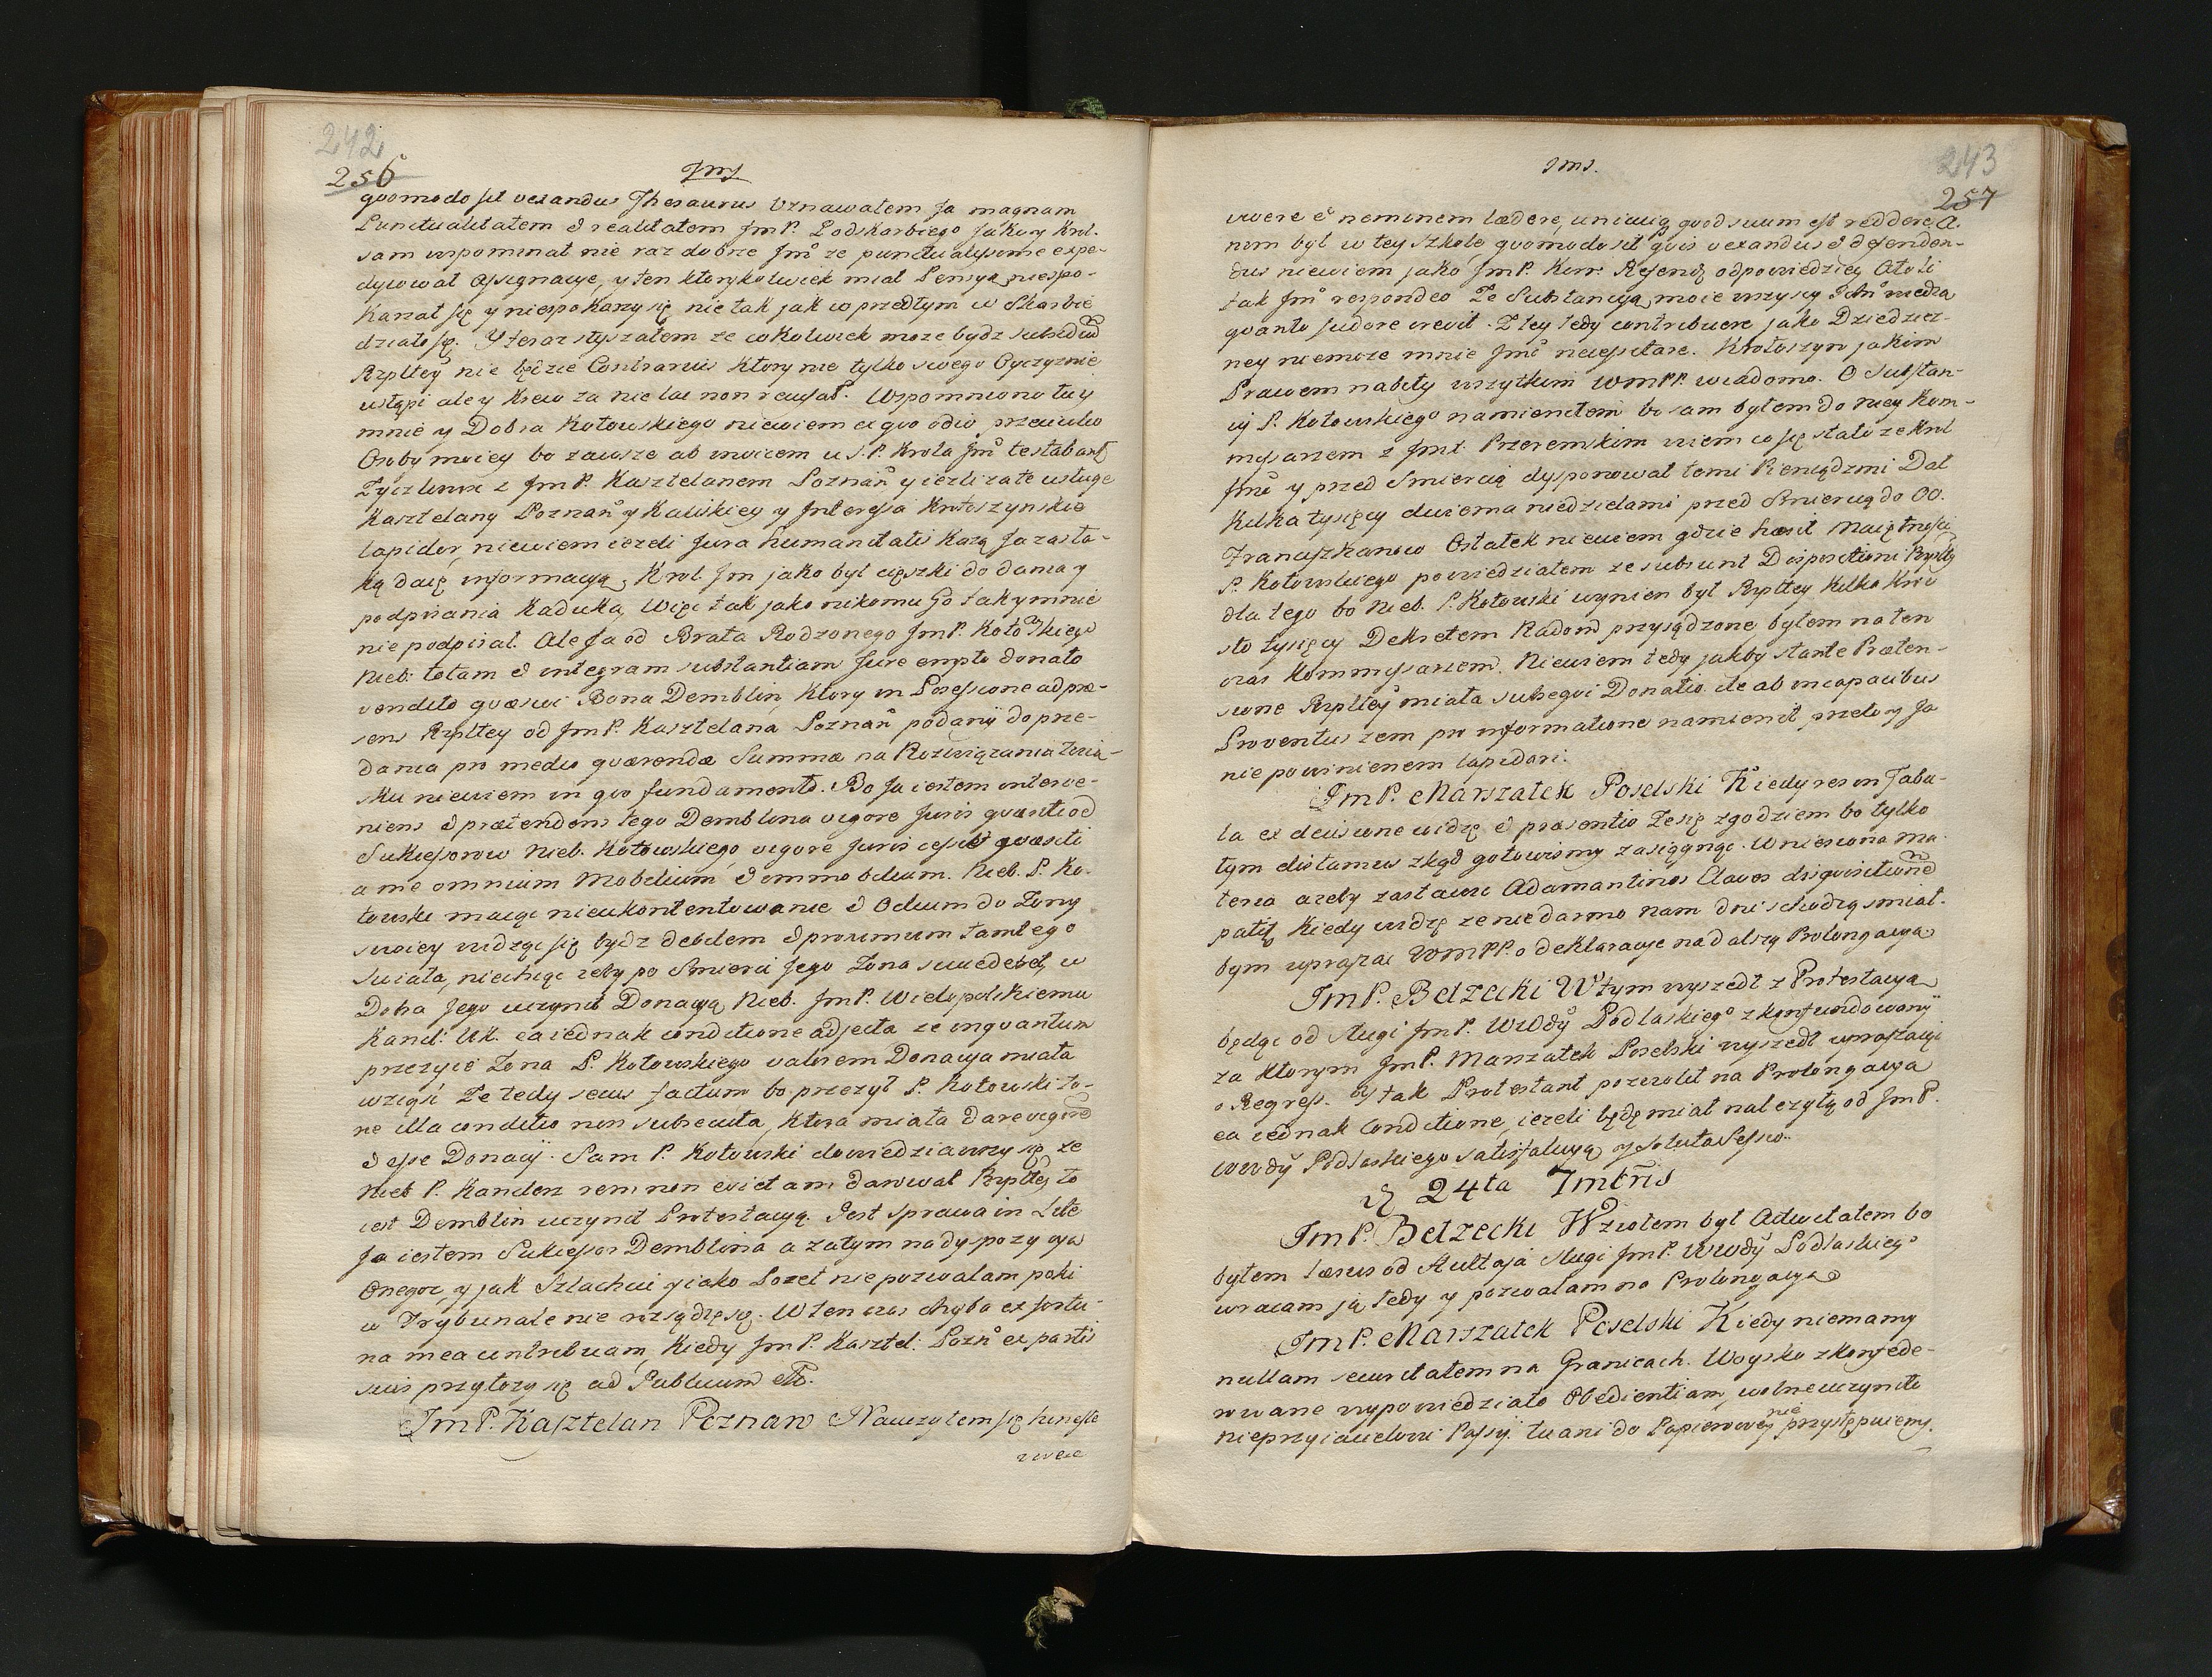 242
256
Jmj
quomodo sit vexandus Thesaurus Uznawałem Ja magnam
Punctualitatem & realitatem Jm P. Podskarbiego Jako y Krol.
sam wspominał nie raz dobrze Jmć ze punctualissime expe-
dyiował Assignacye, y ten ktorykolwiek miał Pensyą niespo-
Kazał się y niespokazy się nie tak jak w przedtym w Skarbie
działo się. Y teraz słyszałem ze cokolwiek moze bydz subsidio
Rzpltey nie będzie Contrarius Ktory nie tylko swego Oyczyznie
ustąpi ale y krew za nie lac non recusat. Wspomniono tu y
mnie y Dobra Kotowskiego niewiem ex quo odio przeciwko
Osoby moiey bo zawsze ab invicem u S.P. Krola Jmć testabant
Zyczliwosc z Jm P. Kasztelanem Poznań y iezli za te usługe
Kasztelany Poznań y Kaliskiey y Interessa Krotoszynskie
lapidor, niewiem iezeli Jura humanitatis Kazą Ja za to-
ką daię informacyą, Krol Jm jako był cięszki do dania y
podpisania Kaduka, Więc tak jako nikomu Go tak y mnie
nie podpisał. Ale Ja od Brata Rodzonego Jm P. Kotowskiego
Nieb: totam & integram substantiam Jure empto donato
vendito quæsivi Bona Demblin, Ktory in Possessione ad præ-
sens Rzpltey od Jm P. Kasztelana Poznań podany do prze-
dania pro medio quærendæ Summæ na Rozwiązania Woia-
sku niewiem in quo fundamento. Bo Ja iestem interve-
niens & prætendens tego Demblina vigore Juris quæsiti od
Sukcessorow Nieb. Kotowskiego vigore Juris cessit quæsiti
a me omnium Mobilium & immobilium. Nieb. P. Ko-
towski maiąc nieukontentowanie & Odium do Zony
swoiey widząc się bydz debilem & proximum tamtego
swiata, niechcąc zeby po Smierci Jego Zona succederet, w
Dobra Jego uczynił Donacyą Nieb. Jm P. Wielopolskiemu
Kancl: WK. ea iednak conditione adjecta ze inquantum
przezyie Zona P. Kotowskiego valorem Donacya miała
wziąść Ze tedy secus factum bo przezył P. Kotowski Zo-
ne illa conditio non subsecuta, Ktora miała dare vigore
& esse Donacij. Sam P. Kotowski dowiedziawszy się ze
Nieb P. Kanclerz rem non evictam darował Rzpltey to
iest Demblin uczynił Protestacyą. Jest sprawa in Lite
Ja iestem Sukcessor Demblina a zatym na dyspozycya
Onegoz y jak Szlachcic y iako Poseł nie pozwalam poki
w Trybunale nie rozsądzę się. W ten czas chyba ex fortu-
na mea contribuam, Kiedy Jm P. Kasztel: Pozn ex partis
suis przyłozy się ad Publicum etc.
Jm P. Kasztelan Poznan Nauczyłem się honeste
vivere

243
257
Jmj.
vivere & neminem lædere, unicuiq quod suum est reddere. A-
nom był w tey Szkole, quomodo sit quis vexandus & defenden-
dus niewiem jako Jm P. Kor. Referend odpowiedziec Atoli
tak Jmć respondeo Ze Substancyą moie wszyscy Ichć wiedzą
quanto sudore crevit. Z tey tedy contribuere jako Dziedzicz-
ney niemoze mnie Jmć necessitare. Krotoszyn jakim
Prawem nabity wszytkim WMPP. wiadomo. O Substan-
cij P. Kotowskiego namieniłem bo sam byłem do niey Kom-
missarzem z Jmć Przeremskim wiem co się stało ze Krol
Jmć y przed Smiercią dysponował temi Pieniądzmi Dał
Kilka tysięcy dwiema niedzielami przed Smiercią do OO.
Franciszkanow Ostatek niewiem gdzie hæsit Maiętnosci
P. Kotowskiego powiedziałem ze subsunt Dispositioni Rzplty
dla tego bo Nieb. P. Kotowski wynien był Rzpltey Kilka Kroc
sto tysięcy Dekretem Radom przysądzone, byłem na ten
czas Kommissarzem. Niewiem tedy jakby stante Præten-
sione Rzpltey miała subsequi Donatio. ile ab incapacibus
Proventus zem pro informatione namienił przeto y Ja
nie powinienem lapidari.
Jm P. Marszałek Poselski Kiedy res in Tabu-
la ex decisione widzę & præsentio Ze się zgodziem bo tylko
tym distamus zkąd gotowismy zasięgnąc. Wniesiona Ma-
teria azeby zastawic Adamantinos Clavos disquisitione
patiy, Kiedy widzę ze nie darmo nam dni schodzą smiał-
bym upraszac WMPP. o deklaracye na dalszą Prolongacyą
Jm P. Bełzecki W tym wyszedł z Protestacyą
będąc od sługi Jm P. Wwdy Podlaskiego zkonfundowany
za Ktorym Jm P. Marszałek Poselski wyszedł upraszaiąc
o Regress. Y tak Protestant pozwolił na Prolongacya
ea iednak Conditione, iezeli będę miał nalezytą od Jm P.
Wwdy Podlaskiego satisfakcyą y soluta Sessio.
D 24ta 7mbris
Jm P. Bełzecki Wziołem był Activitatem bo
byłem læsus od Aultaja sługi Jm P. Wwdy Podlaskiego
wracam ją tedy y pozwalam na Prolongacyą
Jm P. Marszałek Poselski Kiedy niemamy
nullam securitatem na Granicach. Woysko zkonfede-
rowane wypowiedziało Obedientiam, wolne uczyniło
nieprzyiacielowi Passy. tu ani do Papierowey nie przystępuiemy.